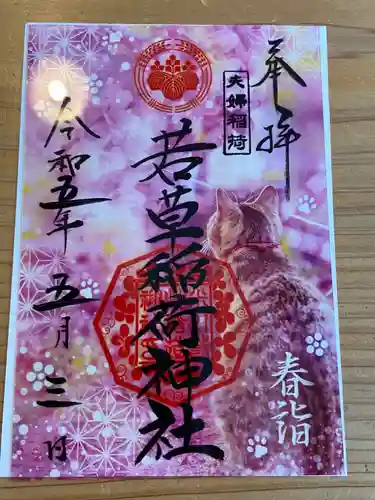 奉拝
夫婦稲荷
春詣
春詣
若草稲荷神社
令和五年
五月三日